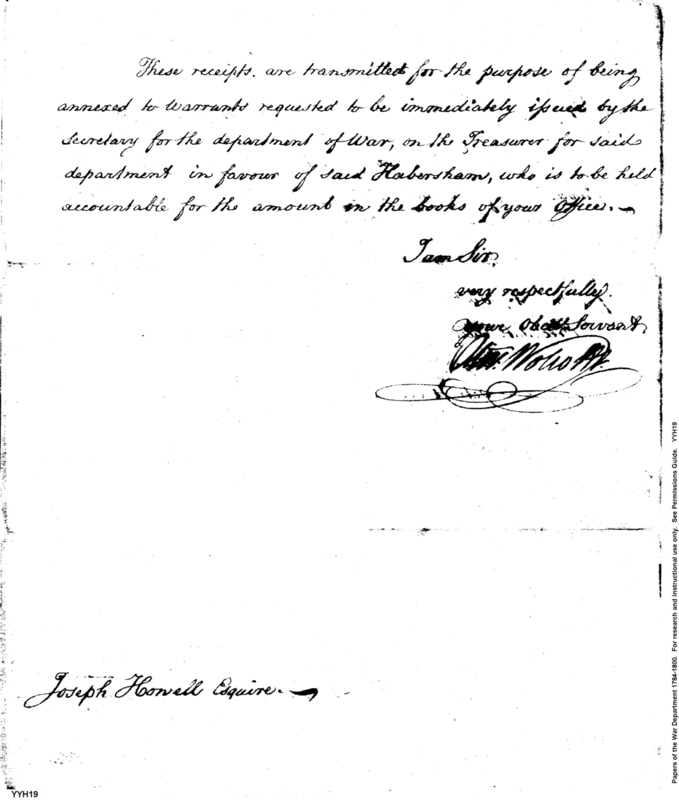 These receipts. are transmitted for the purpose of being
annexed to Warrants requested to be immediately issued by the
Secretary for the department of War, on the Treasurer for said
department in favour of said Habersham, who is to be held
accountable for the amount in the books of your Office.
I am Sir,
very respectfully.
your Obedt Servant,
Olivr. Wolcott
Joseph Howell Esquire.
YYH19
Papers of the War Department 1784-1800. For research and instructional use only. See Permissions Guide. YYH19